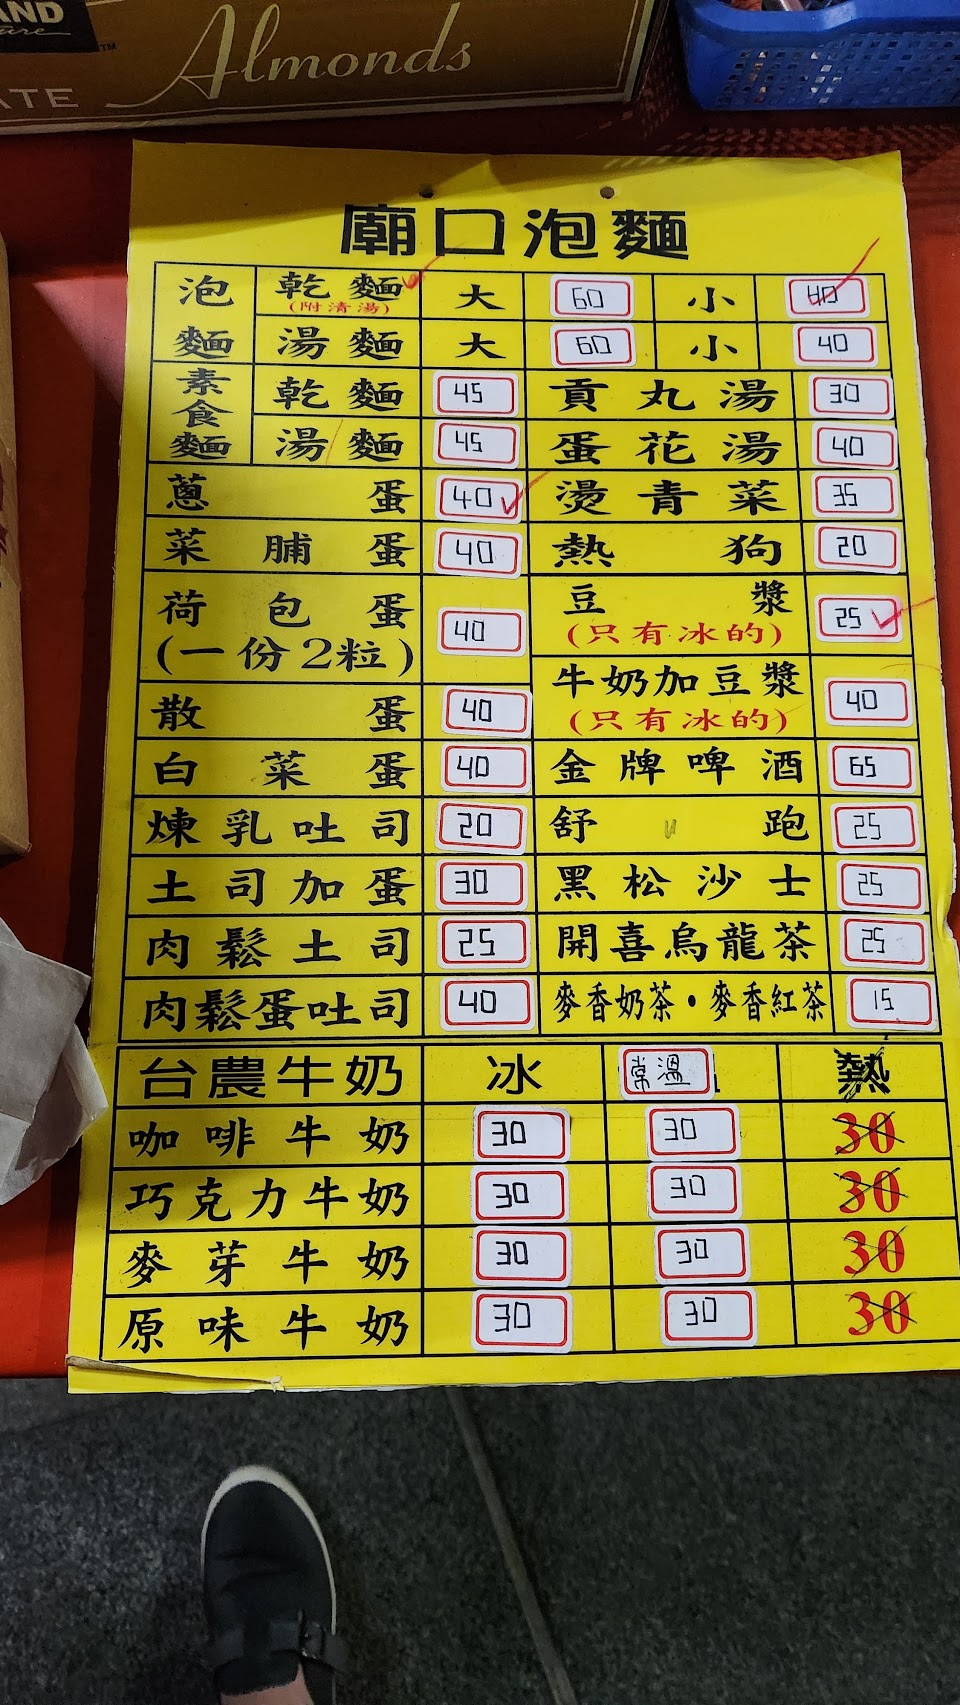 AND
TM
ATE
Almonds
廟口泡麵
泡麵 乾麵 大 60 小 40
(附清湯)
湯麵 大 60 小 40
素食麵 乾麵 45 貢丸湯 30
湯麵 45 蛋花湯 40
蔥蛋 40 燙青菜 35
菜脯蛋 40 熱狗 20
荷包蛋 40 豆漿 25
(一份2粒) (只有冰的)
牛奶加豆漿 40
(只有冰的)
散蛋 40
白菜蛋 40 金牌啤酒 65
煉乳吐司 20 舒跑 25
土司加蛋 30 黑松沙士 25
肉鬆土司 25 開喜烏龍茶 25
肉鬆蛋吐司 40 麥香奶茶·麥香紅茶 15
台農牛奶 冰 常溫 熱
咖啡牛奶 30 30 30
巧克力牛奶 30 30 30
麥芽牛奶 30 30 30
原味牛奶 30 30 30